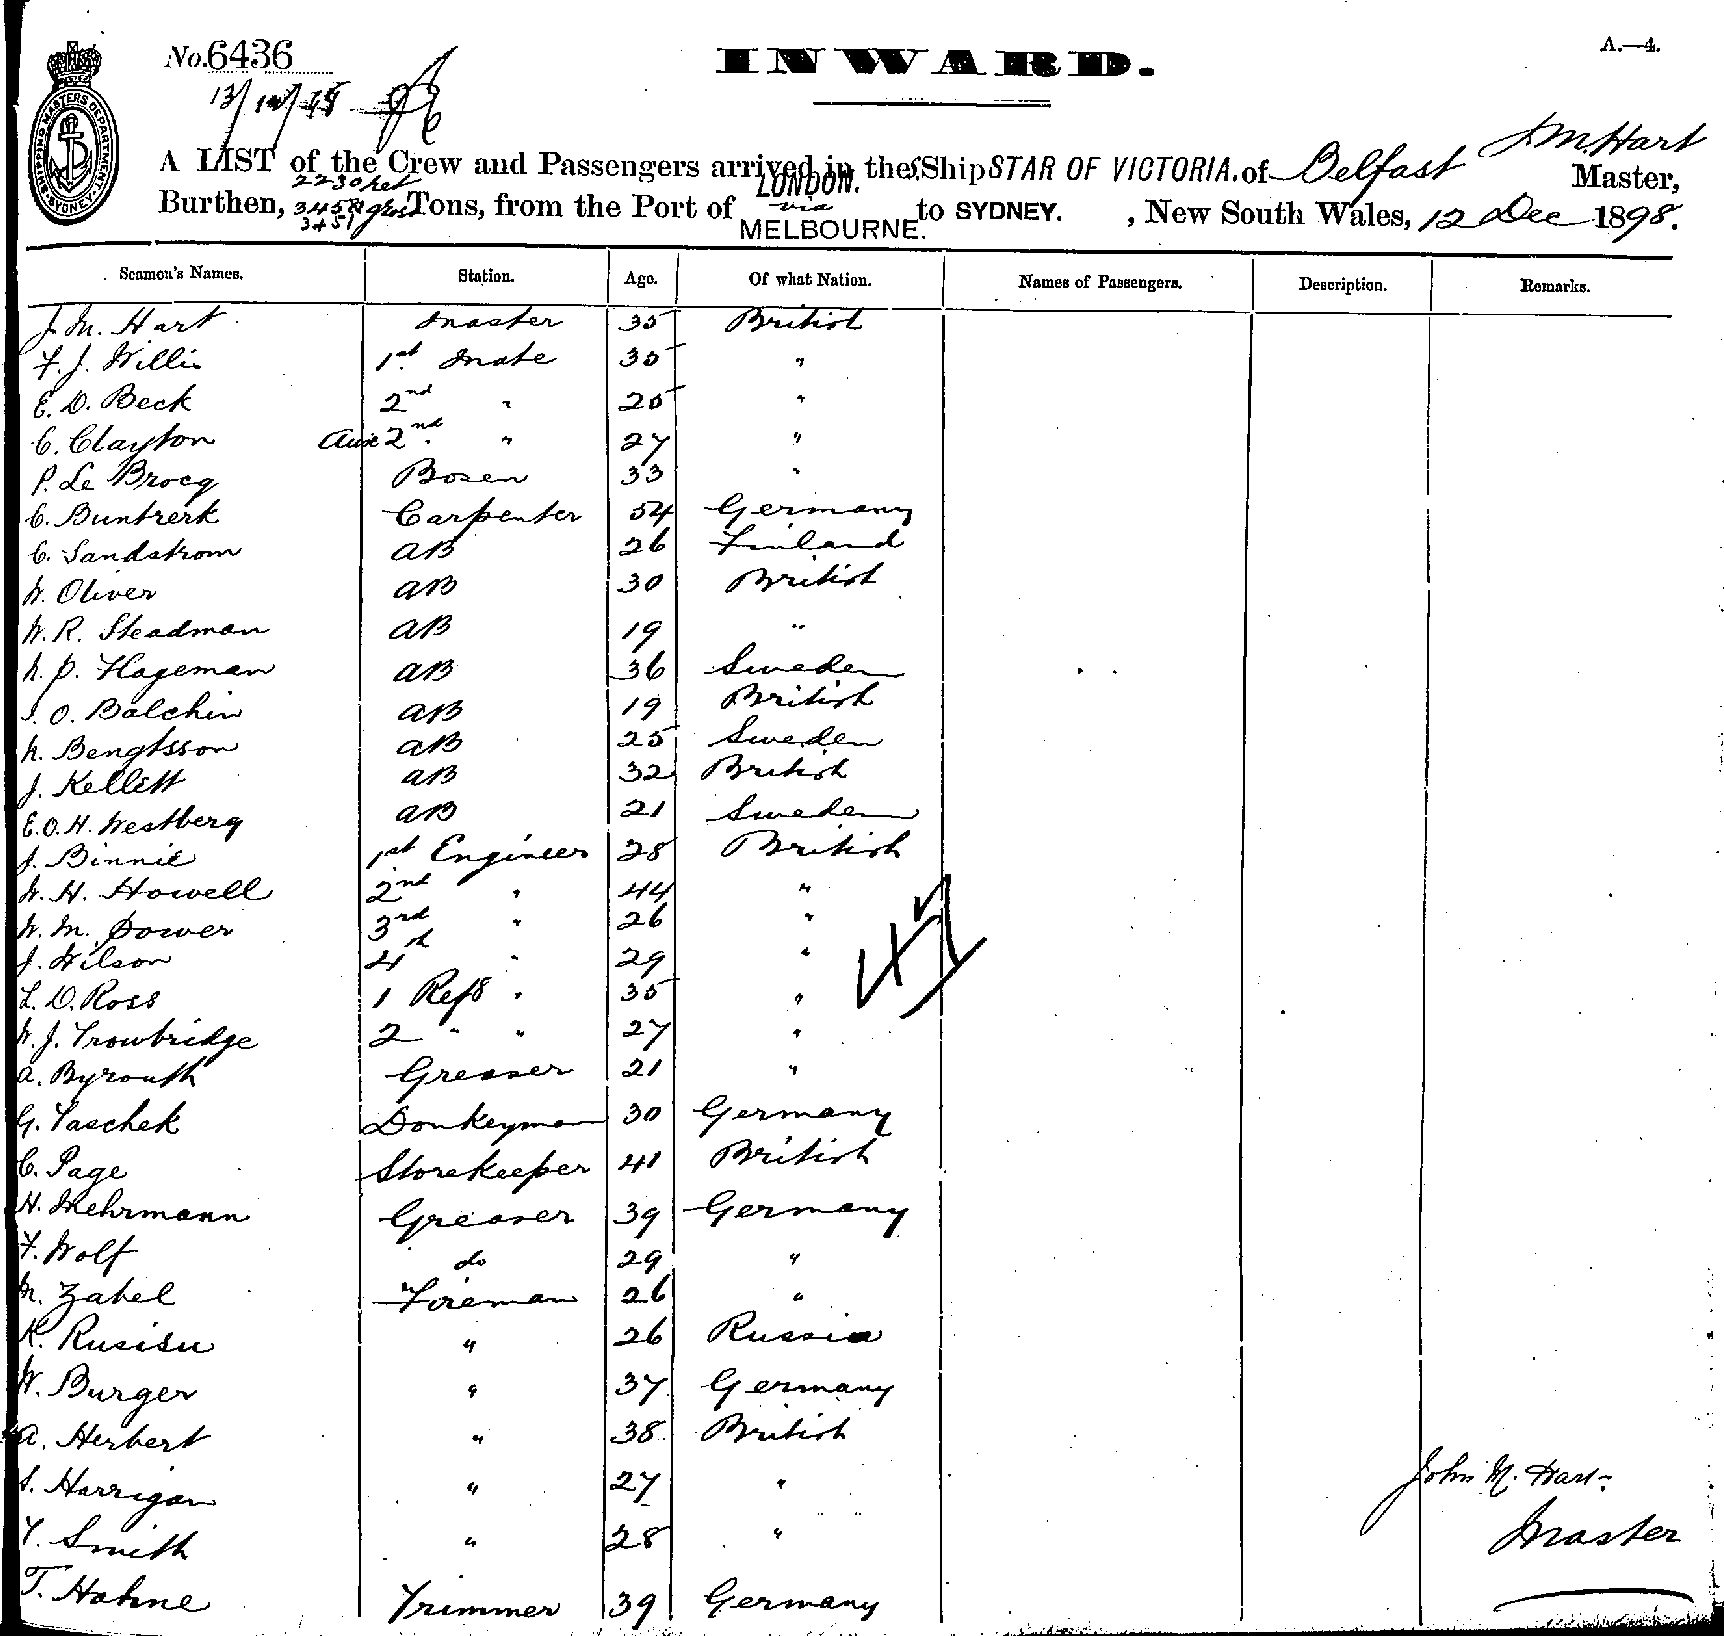 No. 6436
A.—4.
INWARD.
13/12/98
SHIPPING MASTERS DEPARTMENT. SYDNEY.
J. M. Hart
A LIST of the Crew and Passengers arrived in the Ship STAR OF VICTORIA. of Belfast Master,
2230 net
Burthen, Tons, from the Port of LONDON. via MELBOURNE. to SYDNEY. , New South Wales, 12 Dec 1898.
3457
Seamen's Names. Station. Age. Of what Nation. Names of Passengers. Description. Remarks.
J. M. Hart Master 35 British
F. J. Willis 1st Mate 35 "
E. D. Beck 2nd " 25 "
C. Clayton Aux 2nd " 27 "
P. Le Brocq Bosen 33 "
C. Buntrerk Carpenter 54 Germany
C. Sandstrom AB 26 Finland
W. Oliver AB 30 British
W. R. Steadman AB 19 "
N. P. Hageman AB 36 Sweden
J. O. Balchin AB 19 British
N. Bengtsson AB 25 Sweden
J. Kellett AB 32 British
E. O. H. Westberg AB 21 Sweden
J. Binnie 1st Engineer 28 British
W. H. Howell 2nd " 44 "
W. M. Power 3rd " 26 "
J. Wilson 4th " 29 "
L. D. Ross 1 Refg " 35 "
W. J. Trowbridge 2 " " 27 "
A. Byrouth Greaser 21 "
G. Taschek Donkeyman 30 Germany
C. Page Storekeeper 41 British
H. Mehrmann Greaser 39 Germany
F. Wolf do 29 "
M. Zabel Fireman 26 "
K. Rusisu " 26 Russia
W. Burger " 37 Germany
A. Herbert " 38 British
S. Harrigan " 27 "
F. Smith " 28 "
T. Hahne Trimmer 39 Germany
47
John M. Hart
Master